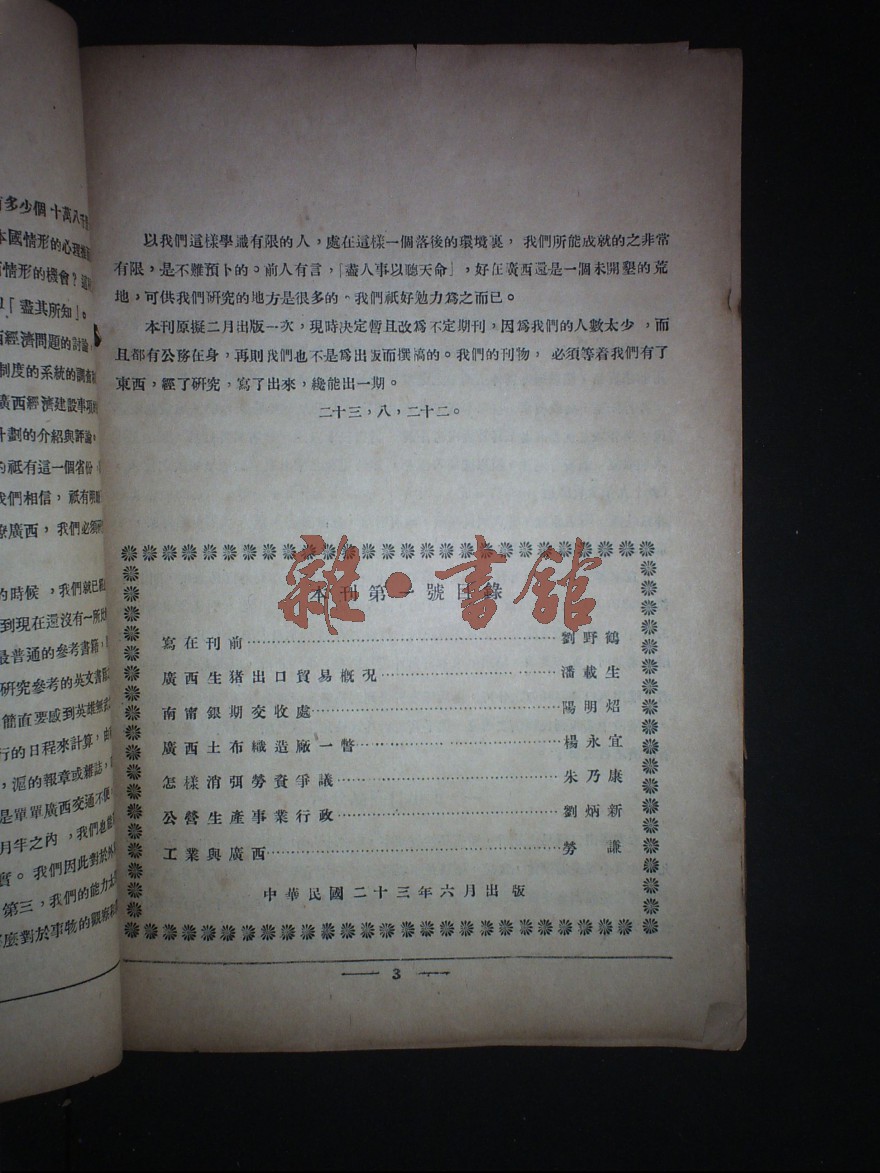 有多少個十萬八千
本國情形的心理
情形的機會？
「盡其所知」。
西經濟問題的討論，
制度的系統的調查
廣西經濟建設事項
計劃的介紹與評論，
的祇有這一個省份，
我們相信，祇有明
瞭廣西，我們必須
的時候，我們就已
到現在還沒有一所
最普通的參考書籍，
研究參考的英文書
簡直要感到英雄無
行的日程來計算，
，滬的報章或雜誌，
是單單廣西交通不便
月半之內，我們也
實。我們因此對於外
第三，我們的能力
對於事物的觀察
以我們這樣學識有限的人，處在這樣一個落後的環境裏，我們所能成就的之非常
有限，是不難預卜的。前人有言，「盡人事以聽天命」，好在廣西還是一個未開墾的荒
地，可供我們研究的地方是很多的。我們祇好勉力為之而已。
本刊原擬二月出版一次，現時決定暫且改為不定期刊，因為我們的人數太少，而
且都有公務在身，再則我們也不是為出版而撰稿的。我們的刊物，必須等着我們有了
東西，經了研究，寫了出來，纔能出一期。
二十三，八，二十二。
雜·書館
本刊第一號目錄
寫在刊前……劉野鶴
廣西生猪出口貿易概況……潘載生
南甯銀期交收處……陽明炤
廣西土布織造廠一瞥……楊永宜
怎樣消弭勞資爭議……朱乃康
公營生產事業行政……劉炳新
工業與廣西……勞謙
中華民國二十三年六月出版
3